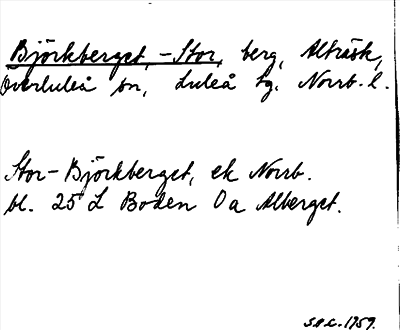 Björkberget, -Stor, berg, Alträsk,
Överluleå sn, Luleå tg. Norrb. l.
Stor-Björkberget, ek Norrb.
bl. 25 L Boden 0a Alberget.
S.P.C. 1959.